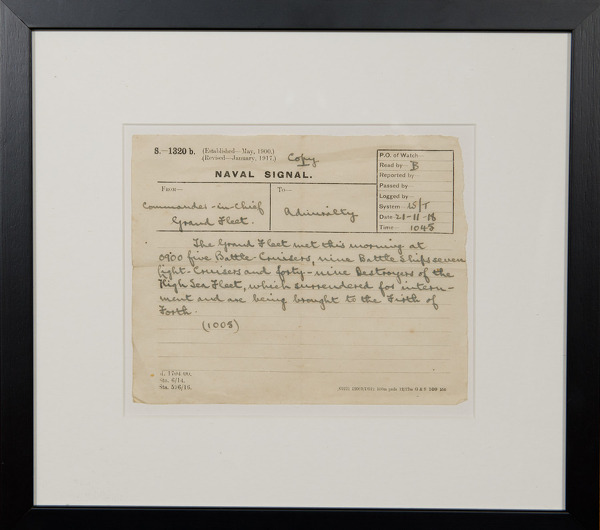 S.—1320 b. (Established—May, 1900.)
(Revised—January, 1917.)
Copy
NAVAL SIGNAL.
P.O. of Watch—
Read by— B
Reported by—
Passed by—
Logged by—
System— W/T
Date— 21-11-18
Time— 1048
From—
Commander-in-Chief
Grand Fleet.
To—
Admiralty
The Grand Fleet met this morning at
0900 five Battle-Cruisers, nine Battle Ships seven
light-Cruisers and forty-nine Destroyers of the
High Sea Fleet, which surrendered for intern-
ment and are being brought to the Firth of
Forth.
(1008)
Sta. 6/14.
Sta. 526/16.